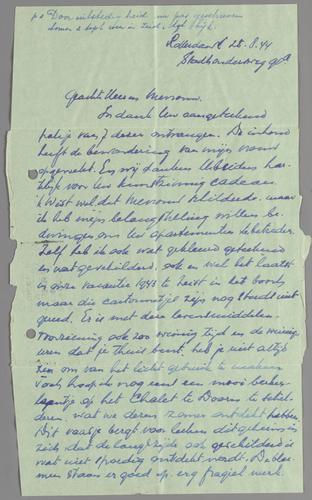 p.s. Door uitstedigheid nu pas geschreven
Rotterdam 25.8.44
Stadhoudersweg 90
Geachte Heer en Mevrouw.
In dank Uw aangetekend
pakje van 7 dezer ontvangen. De inhoud
heeft de bewondering van mijn vrouw
opgewekt. En wij danken U beiden har-
telijk voor Uw kunstzinnig cadeau.
'k Wist wel dat Mevrouw schilderde, maar
ik heb mijn belangstelling willen be-
dwingen om Uw apartementen te betreden.
Zelf heb ik ook wat gekleurd getekend
en wat geschilderd, ook en wel het laatst
in onze vacantie 1943 te Zeist in het bosch
maar die cartonnetjes zijn nog steeds niet
goed. Er is met deze levensmiddelen-
voorziening ook zoo weinig tijd en de weinige
uren dat je thuis bent, heb je niet altijd
zin om van het licht gebruik te maken.
Toch hoop ik nog eens een mooi berken-
laantje op het Chalet te Doorn te schil-
deren, wat we dezen zomer ontdekt hebben.
Dit vaasje bergt voor leeken dit geheim in
zich, dat de langste zijde ook geschilderd is
wat niet spoedig ontdekt wordt. De bloe-
men staan er goed op, erg fragiel werk.